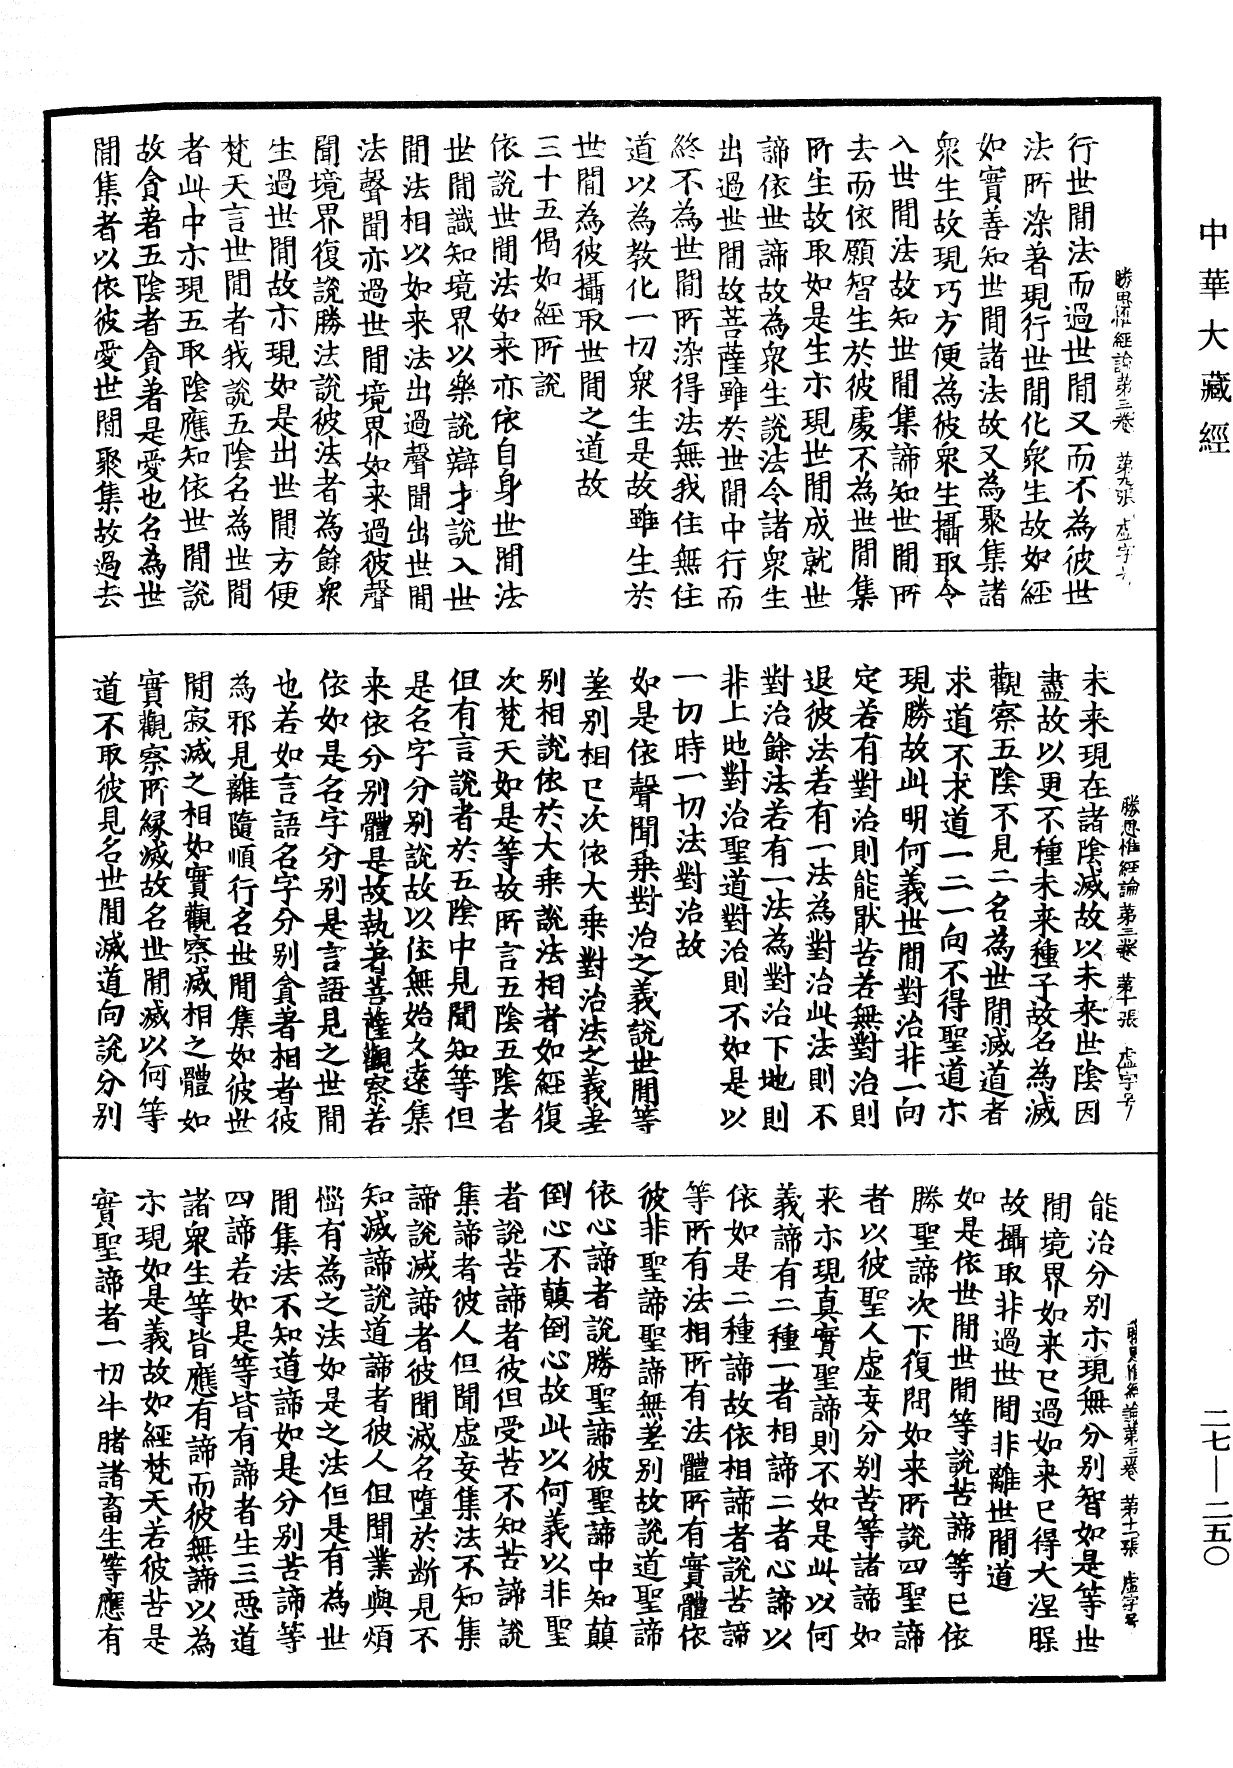 中華大藏經
勝思惟經論第三卷 第九張 虛字号
行世間法而過世間又而不為彼世
法所染著現行世間化衆生故如經
如實善知世間諸法故又為聚集諸
衆生故現巧方便為彼衆生攝取令
入世間法故知世間集諦知世間所
去而依願智生於彼處不為世間集
所生故取如是生亦現世間成就世
諦依世諦故為衆生說法令諸衆生
出過世間故菩薩雖於世間中行而
終不為世間所染得法無我住無住
道以為教化一切衆生是故雖生於
世間為彼攝取世間之道故
三十五偈如經所說
依說世間法如来亦依自身世間法
世間識知境界以樂說辯才說入世
間法相以如来法出過聲聞出世間
法聲聞亦過世間境界如来過彼聲
聞境界復說勝法說彼法者為餘衆
生過世間故亦現如是出世間方便
梵天言世間者我說五陰名為世間
者此中亦現五取陰應知依世間說
故貪著五陰者貪著是愛也名為世
間集者以依彼愛世間聚集故過去
勝思惟經論第三卷 第十張 虛字号
未来現在諸陰滅故以未来世陰因
盡故以更不種未来種子故名為滅
觀察五陰不見二名為世間滅道者
求道不求道一二一向不得聖道亦
現勝故此明何義世間對治非一向
定若有對治則能猒苦若無對治則
退彼法若有一法為對治此法則不
對治餘法若有一法為對治下地則
非上地對治聖道對治則不如是以
一切時一切法對治故
如是依聲聞乘對治之義說世間等
差別相已次依大乘對治法之義差
別相說依於大乘說法相者如經復
次梵天如是等故所言五陰五陰者
但有言說者於五陰中見聞知等但
是名字分別說故以依無始久遠集
来依分別體是故執著菩薩觀察若
依如是名字分別是言語見之世間
也若如言語名字分別貪著相者彼
為邪見離隨順行名世間集如彼世
間寂滅之相如實觀察滅相之體如
實觀察所緣滅故名世間滅以何等
道不取彼見名世間滅道向說分別
勝思惟經論第三卷 第十一張 虛字号
能治分別亦現無分別智如是等世
間境界如来已過如来已得大涅槃
故攝取非過世間非離世間道
如是依世間世間等說苦諦等已依
勝聖諦次下復問如来所說四聖諦
者以彼聖人虛妄分別苦等諸諦如
来亦現真實聖諦則不如是此以何
義諦有二種一者相諦二者心諦以
依如是二種諦故依相諦者說苦諦
等所有法相所有法體所有實體依
彼非聖諦聖諦無差別故說道聖諦
依心諦者說勝聖諦彼聖諦中知顛
倒心不顛倒心故此以何義以非聖
者說苦諦者彼但受苦不知苦諦說
集諦者彼人但聞虛妄集法不知集
諦說滅諦者彼聞滅名墮於断見不
知滅諦說道諦者彼人但聞業與煩
惱有為之法如是之法但是有為世
間集法不知道諦如是分別苦諦等
四諦若如是等皆有諦者生三惡道
諸衆生等皆應有諦而彼無諦以為
亦現如是義故如經梵天若彼苦是
實聖諦者一切牛賭諸畜生等應有
二七—二五〇